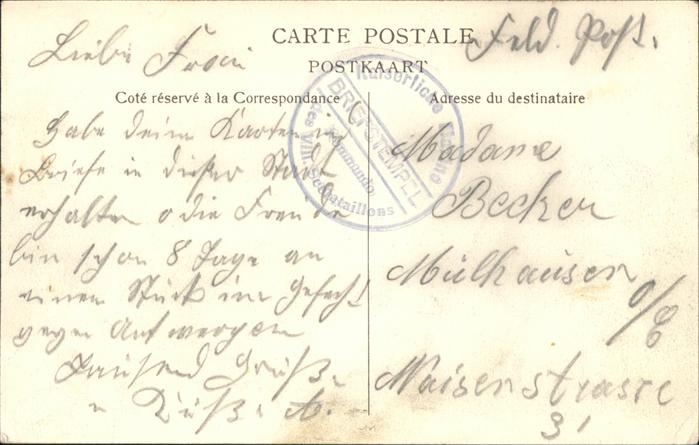 CARTE POSTALE
POSTKAART
Coté réservé à la Correspondance
Adresse du destinataire
Feld. Post.
Kaiserliche Marine
BRIEFSTEMPEL
Kommando
des VIII. Seebataillons
Liebe Frau
habe deine Karten und
Briefe in dieser Stadt
erhalten o die Freude
bin schon 8 Tage an
einem Stück im Gefecht
gegen Antwerpen
Tausend Grüße
u Küße A.
Madame
Becker
Mülhausen
o/E
Waisenstrasse
31